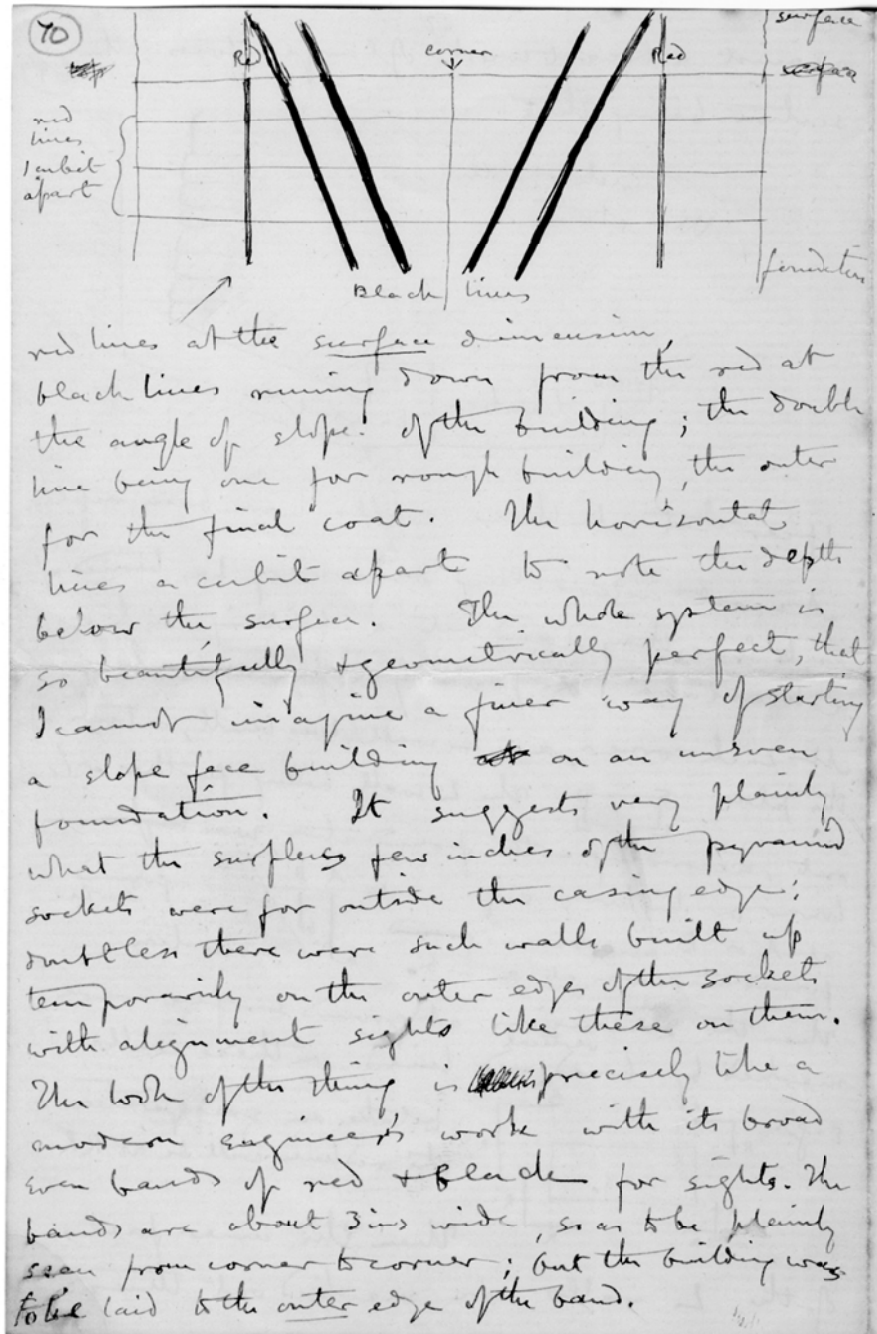 70
surface
Red
corner
Red
red
lines
1 cubit
apart
foundation
Black lines
red lines at the surface dimension,
black lines running down from the red at
the angle of slope of the building; the double
line being one for rough building, the outer
for the final coat. The horizontal
lines a cubit apart to note the depth
below the surface. The whole system is
so beautifully & geometrically perfect, that
I cannot imagine a finer way of starting
a slope face building on an uneven
foundation. It suggests very plainly
what the surpless few inches of the pyramid
sockets were for outside the casing edge;
doubtless there were such walls built up
temporarily on the outer edges of the sockets
with alignment sights like these on them.
The look of the thing is precisely like a
modern engineer's work with its broad
even bands of red & black for sights. The
bands are about 3 ins wide, so as to be plainly
seen from corner to corner; but the building was
to be laid to the outer edge of the band.